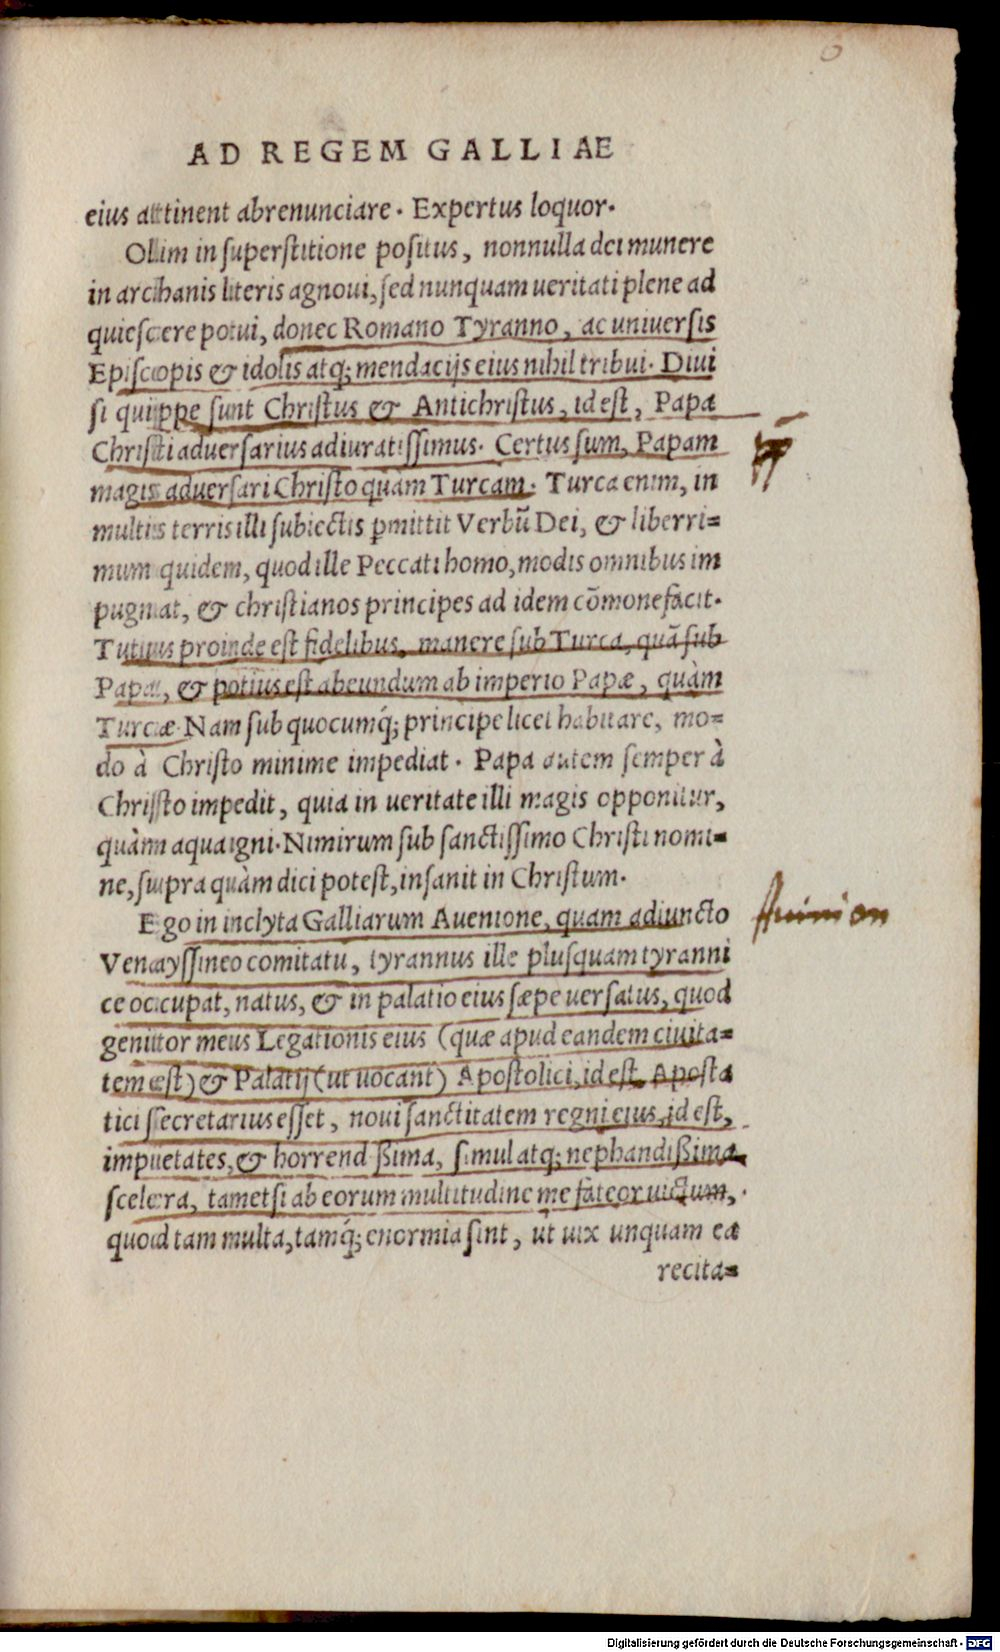 6
AD REGEM GALLIAE
eius attinent abrenunciare. Expertus loquor.
Olim in superstitione positus, nonnulla dei munere
in archanis literis agnoui, sed nunquam ueritati plene ad
quiescere potui, donec Romano Tyranno, ac uniuersis
Episcopis & idolis atq; mendacijs eius nihil tribui. Diui
si quippe sunt Christus & Antichristus, id est, Papa
Christi aduersarius adiuratissimus. Certus sum, Papam
magis aduersari Christo quam Turcam. Turca enim, in
multis terris illi subiectis ꝑmittit Verbũ Dei, & liberri=
mum quidem, quod ille Peccati homo, modis omnibus im
pugnat, & christianos principes ad idem cõmonefacit.
Tutius proinde est fidelibus, manere sub Turca, quã sub
Papa, & potius est abeundum ab imperio Papæ, quàm
Turcæ. Nam sub quocumq́; principe licet habitare, mo=
do à Christo minime impediat. Papa autem semper à
Christo impedit, quia in ueritate illi magis opponitur,
quàm aqua igni. Nimirum sub sanctissimo Christi nomi=
ne, supra quàm dici potest, insanit in Christum.
Ego in inclyta Galliarum Auenione, quam adiuncto
Auinion
Venayssineo comitatu, tyrannus ille plusquam tyranni
ce occupat, natus, & in palatio eius sæpe uersatus, quod
genitor meus Legationis eius (quæ apud eandem ciuita=
tem est) & Palatij (ut uocant) Apostolici, id est, Aposta
tici secretarius esset, noui sanctitatem regni eius, id est,
impietates, & horrendißima, simul atq; nephandißima
scelera, tametsi ab eorum multitudine me fateor uictum,
quod tam multa, tamq́; enormia sint, ut uix unquam ea
recita=
Digitalisierung gefördert durch die Deutsche Forschungsgemeinschaft - DFG